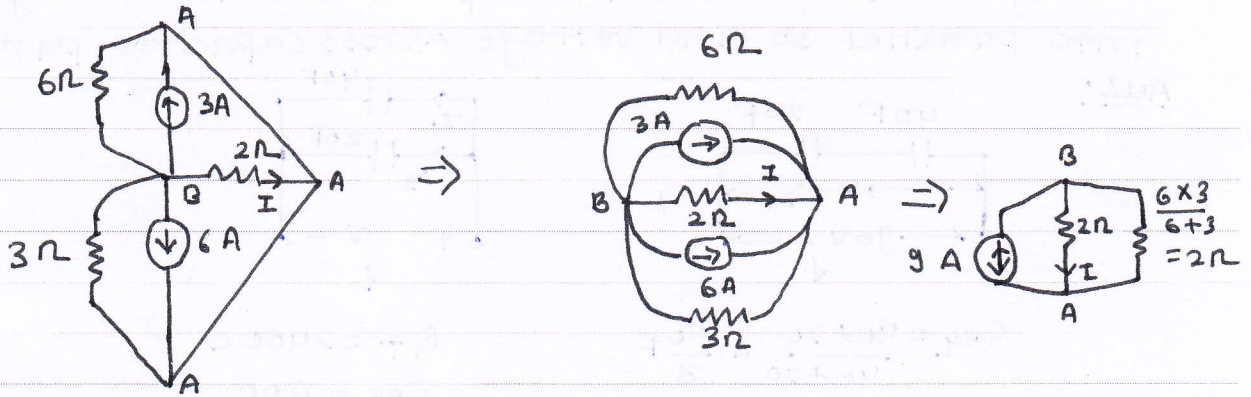 A
6Ω
3A
2Ω
B
I
A
3Ω
6A
A
⇒
6Ω
3A
I
B
A
2Ω
6A
3Ω
⇒
B
9A
2Ω
I
A
6×3
6+3
=2Ω